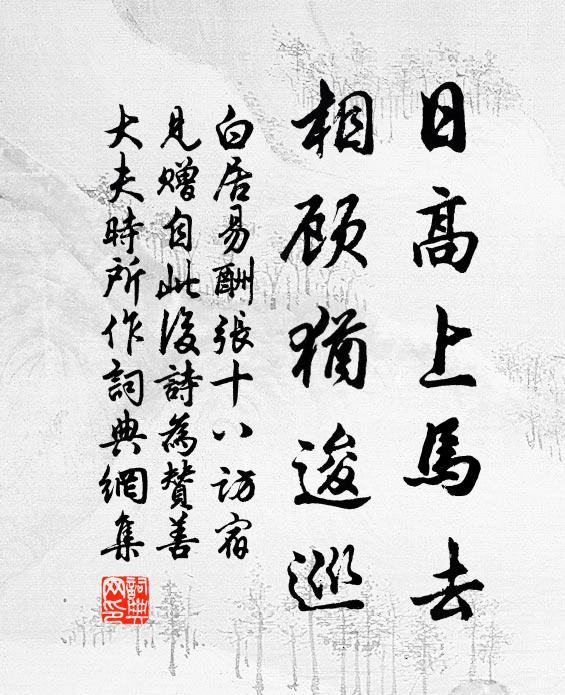 日高上馬去
相顧猶逡巡
白居易酬張十八訪宿
見贈自此後詩為贊善
大夫時所作詞典網集